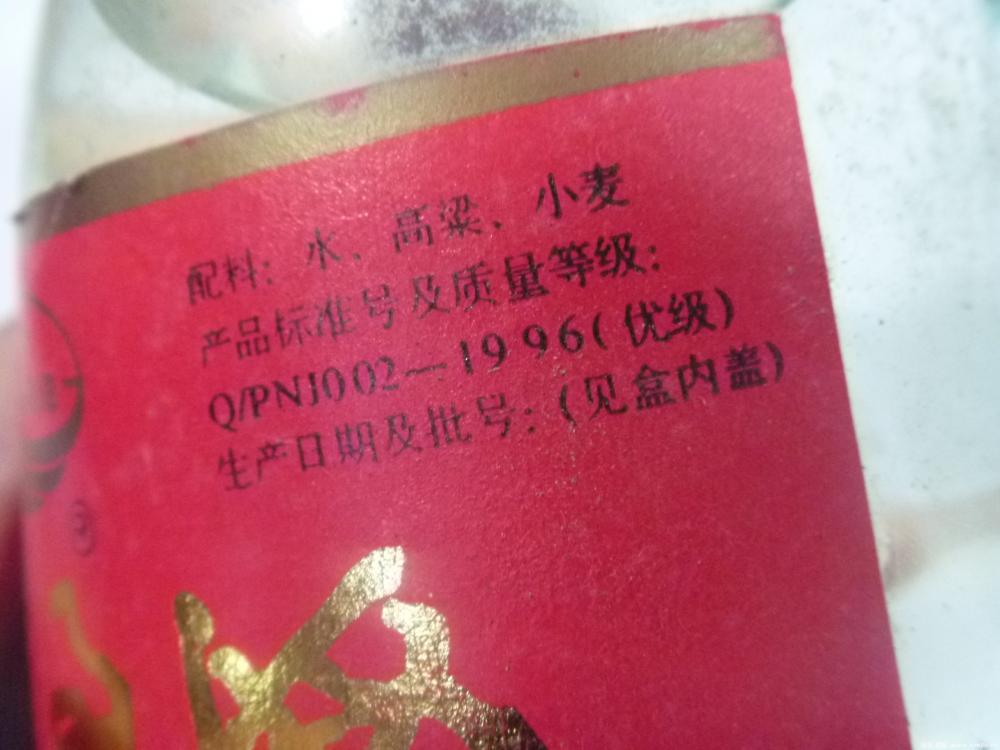 配料：水、高粱、小麦
产品标准号及质量等级：
Q/PNJ002—1996(优级)
生产日期及批号：(见盒内盖)
®